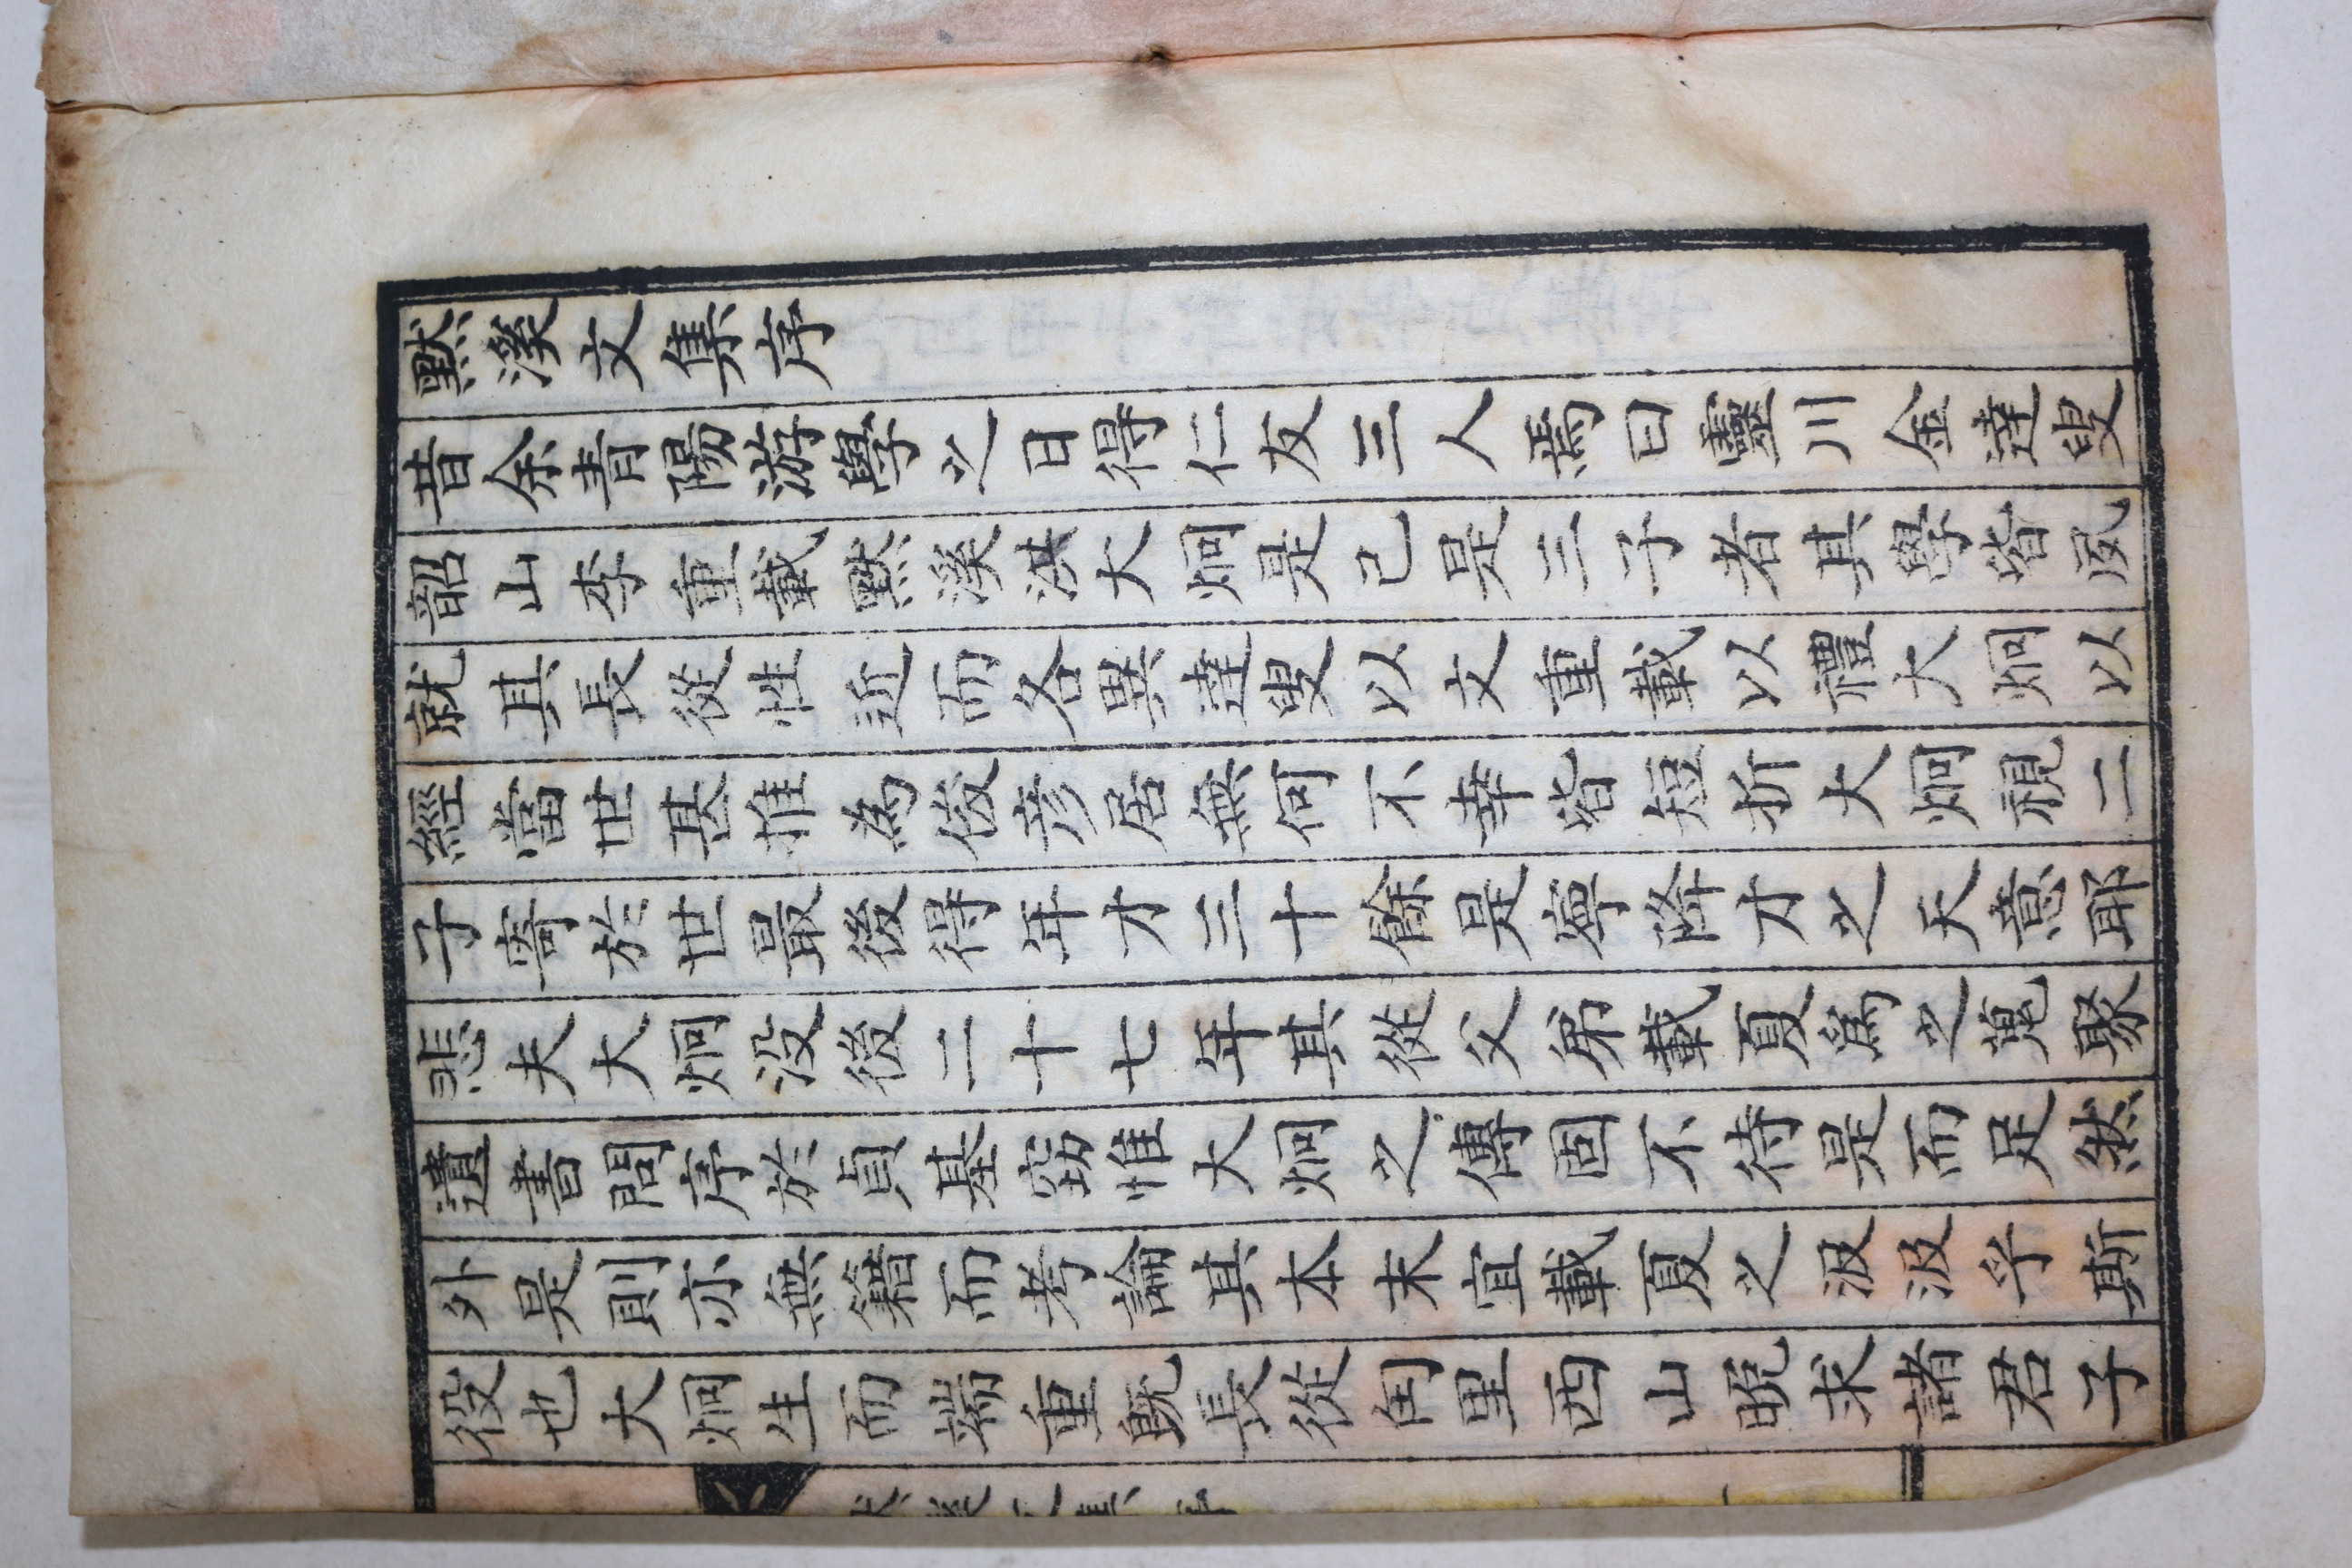 默溪文集序
昔余青陽游學之日得仁友三人焉曰靈川金達叟
韶山李重載默溪洪大炯是已是三子者其學皆夙
就其長從性近而各異達叟以文重載以禮大炯以
經當世甚推為俊彦居無何不幸皆短折大炯視二
子寄於世最後得年才三十餘是寧降才之天意耶
悲夫大炯沒後二十七年其從父弟載夏爲之蒐聚
遺書問序於貞基竊惟大炯之傳固不待是而足然
外是則亦無籍而考論其本末宜載夏之汲汲乎斯
役也大炯生而端重旣長從倒里西山晩求諸君子
默溪文集序